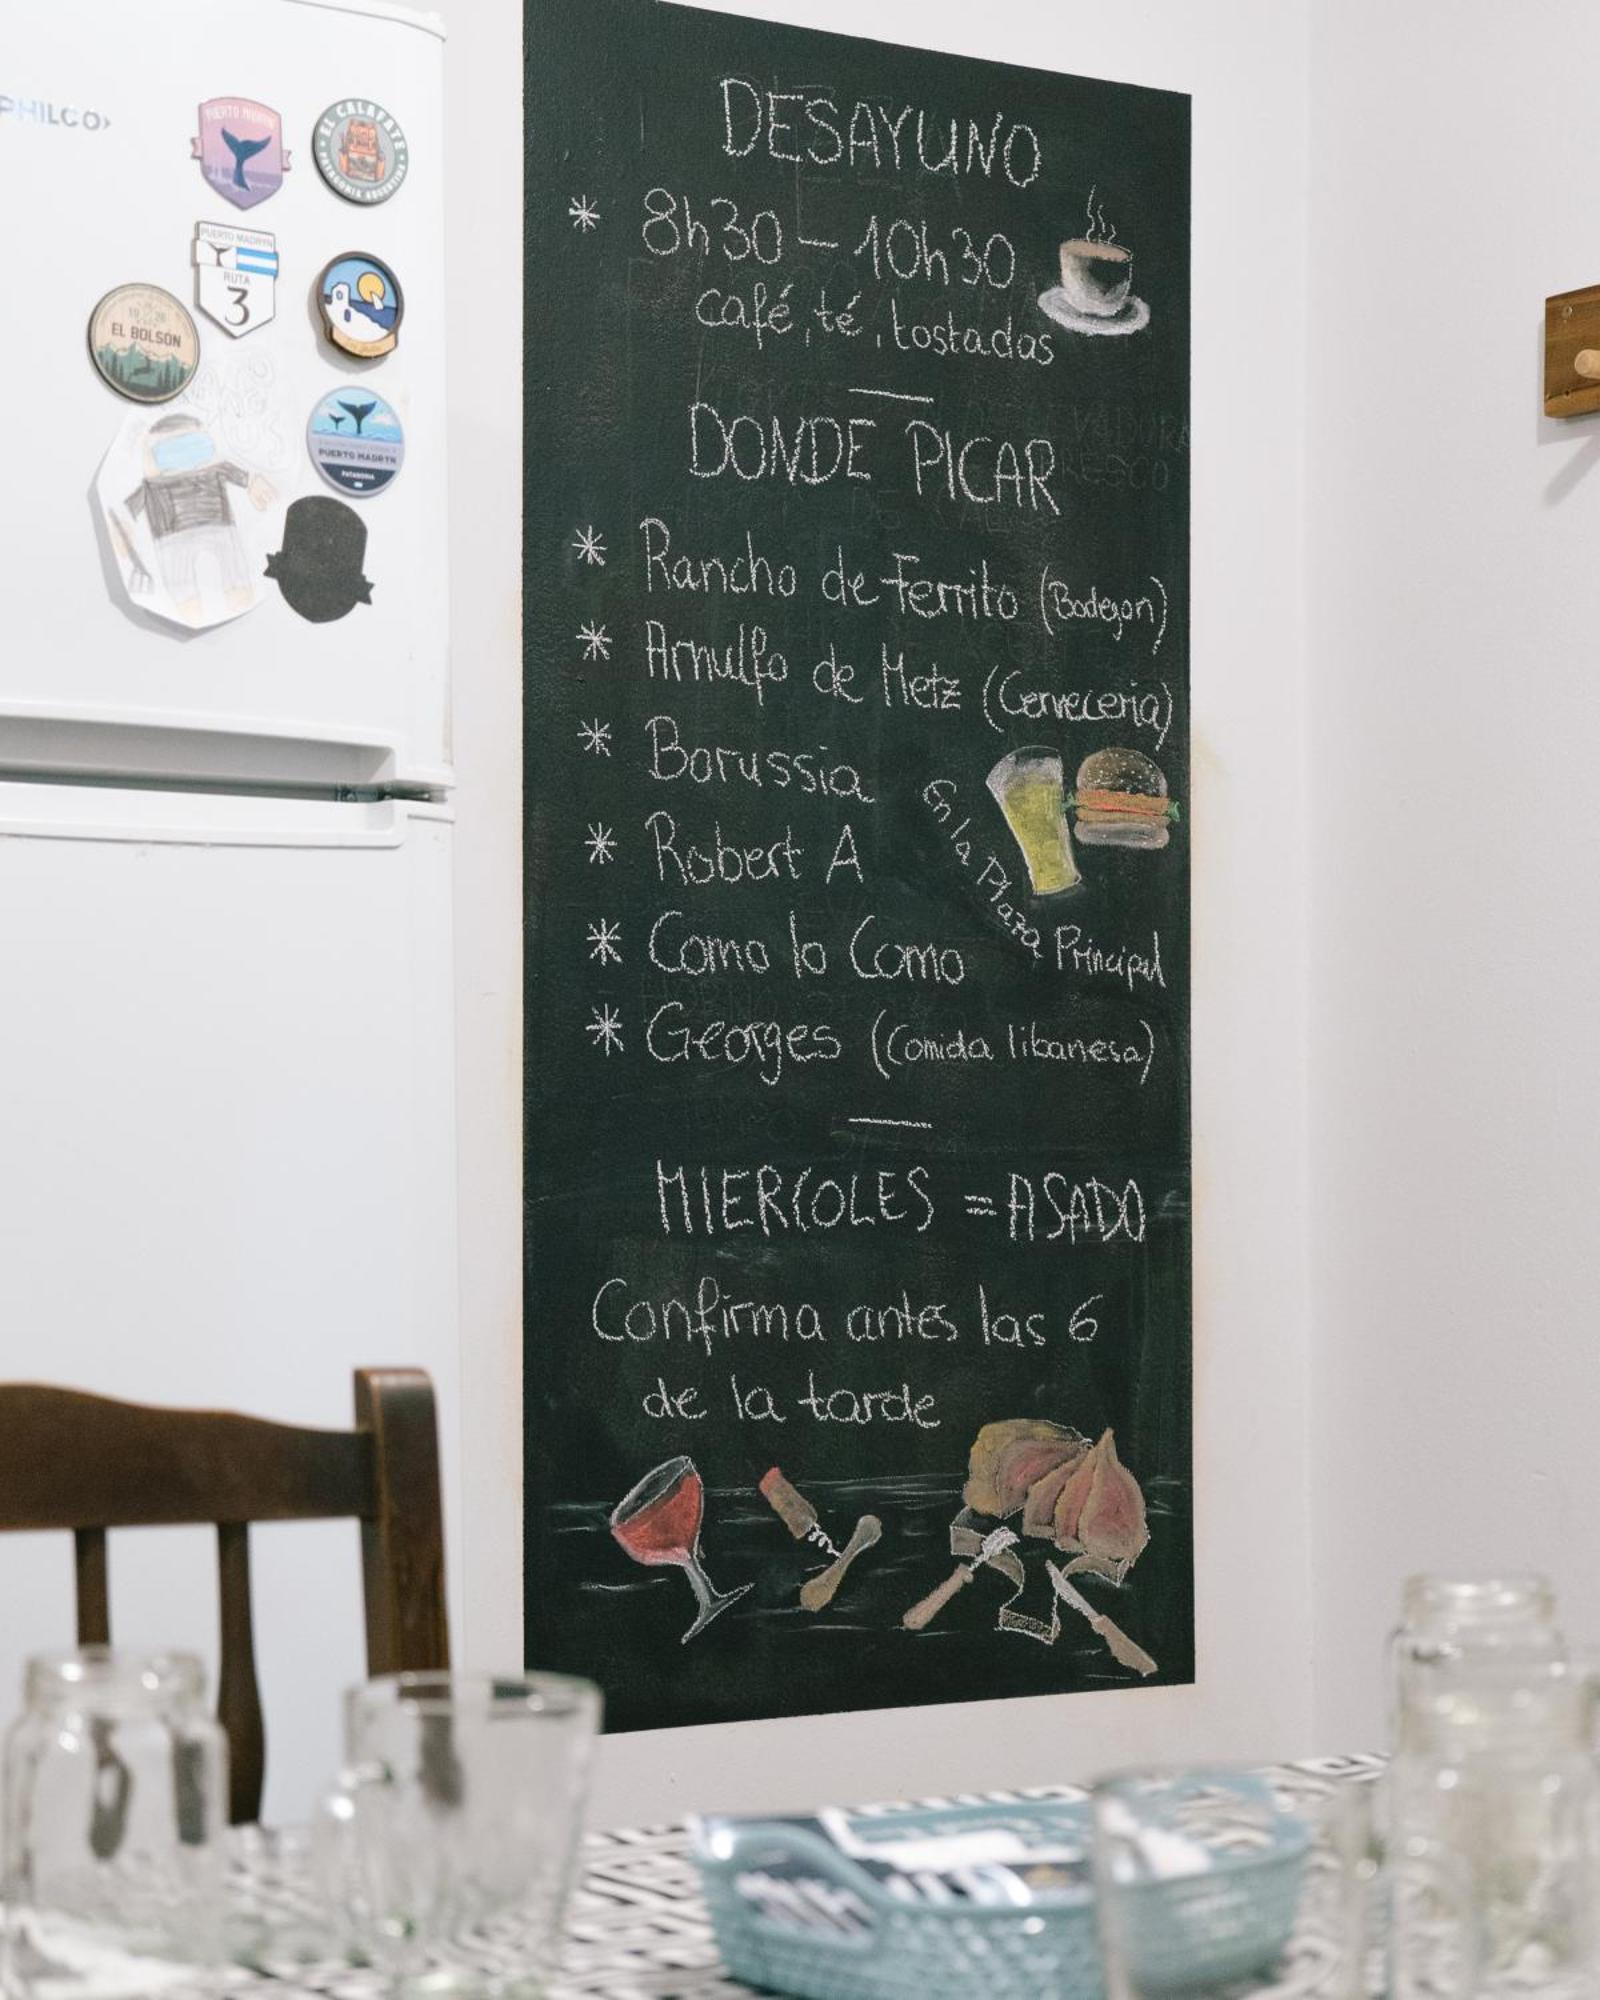 PHILCO
PUERTO MADRYN
EL CALAFATE
PATAGONIA ARGENTINA
PUERTO MADRYN
RUTA
3
1926
EL BOLSÓN
PUERTO MADRYN
PATAGONIA
DESAYUNO
* 8h30 – 10h30
café, té, tostadas
DONDE PICAR
* Rancho de Ferrito (Bodegon)
* Arnulfo de Metz (Cerveceria)
* Borussia
* Robert A
* Como lo Como
En la Plaza Principal
* Georges (Comida libanesa)
MIERCOLES = ASADO
Confirma antes las 6
de la tarde